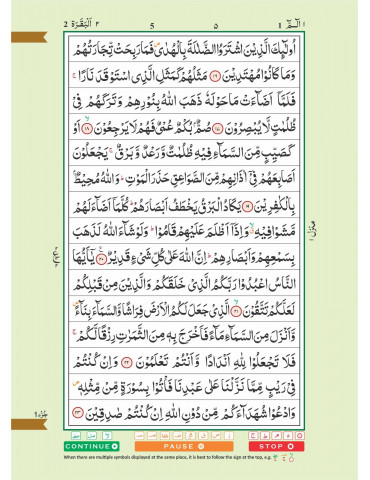 2 اَلْبَقَرَة ٢
5 ٥
1 الٓمّٓ ١
اُولٰٓئِكَ الَّذِيْنَ اشْتَرَوُا الضَّلٰلَةَ بِالْهُدٰى فَمَا رَبِحَتْ تِّجَارَتُهُمْ
وَمَا كَانُوْا مُهْتَدِيْنَ ﴿١٦﴾ مَثَلُهُمْ كَمَثَلِ الَّذِى اسْتَوْقَدَ نَارًا ۚ
فَلَمَّآ اَضَآءَتْ مَا حَوْلَهٗ ذَهَبَ اللّٰهُ بِنُوْرِهِمْ وَتَرَكَهُمْ فِىْ
ظُلُمٰتٍ لَّا يُبْصِرُوْنَ ﴿١٧﴾ صُمٌّۢ بُكْمٌ عُمْىٌ فَهُمْ لَا يَرْجِعُوْنَ ﴿١٨﴾ اَوْ
كَصَيِّبٍ مِّنَ السَّمَآءِ فِيْهِ ظُلُمٰتٌ وَّرَعْدٌ وَّبَرْقٌ ۚ يَجْعَلُوْنَ
اَصَابِعَهُمْ فِىْٓ اٰذَانِهِمْ مِّنَ الصَّوَاعِقِ حَذَرَ الْمَوْتِ ؕ وَاللّٰهُ مُحِيْطٌۢ
بِالْكٰفِرِيْنَ ﴿١٩﴾ يَكَادُ الْبَرْقُ يَخْطَفُ اَبْصَارَهُمْ ؕ كُلَّمَآ اَضَآءَ لَهُمْ
مَّشَوْا فِيْهِ ۙ وَاِذَآ اَظْلَمَ عَلَيْهِمْ قَامُوْا ؕ وَلَوْ شَآءَ اللّٰهُ لَذَهَبَ
بِسَمْعِهِمْ وَاَبْصَارِهِمْ ؕ اِنَّ اللّٰهَ عَلٰى كُلِّ شَىْءٍ قَدِيْرٌ ﴿٢٠﴾ يٰٓاَيُّهَا
النَّاسُ اعْبُدُوْا رَبَّكُمُ الَّذِىْ خَلَقَكُمْ وَالَّذِيْنَ مِنْ قَبْلِكُمْ
لَعَلَّكُمْ تَتَّقُوْنَ ﴿٢١﴾ الَّذِىْ جَعَلَ لَكُمُ الْاَرْضَ فِرَاشًا وَّالسَّمَآءَ بِنَآءً
وَّاَنْزَلَ مِنَ السَّمَآءِ مَآءً فَاَخْرَجَ بِهٖ مِنَ الثَّمَرٰتِ رِزْقًا لَّكُمْ ۚ
فَلَا تَجْعَلُوْا لِلّٰهِ اَنْدَادًا وَّاَنْتُمْ تَعْلَمُوْنَ ﴿٢٢﴾ وَاِنْ كُنْتُمْ
فِىْ رَيْبٍ مِّمَّا نَزَّلْنَا عَلٰى عَبْدِنَا فَاْتُوْا بِسُوْرَةٍ مِّنْ مِّثْلِهٖ ۪
وَادْعُوْا شُهَدَآءَكُمْ مِّنْ دُوْنِ اللّٰهِ اِنْ كُنْتُمْ صٰدِقِيْنَ ﴿٢٣﴾
منزل ١
جُزء 1
CONTINUE
PAUSE
STOP
When there are multiple symbols displayed at the same place, it is best to follow the sign at the top, e.g.